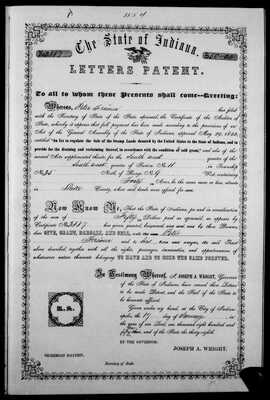 The State of Indiana.
LETTERS PATENT.
To all to whom these Presents shall come—Greeting:
Whereas, Peter has filed
with the Secretary of State of the State aforesaid, the Certificate of the Auditor of
State, whereby it appears that full payment has been made according to the provisions of an
Act of the General Assembly of the State of Indiana, approved May 29, 1852,
entitled "An Act to regulate the Sale of the Swamp Lands donated by the United States to the State of Indiana, and to
provide for the draining and reclaiming thereof, in accordance with the condition of said grant," and also of the
several Acts supplemental thereto for the South west quarter of the
South west quarter of Section No. 11 in Township
No. North of Range No. 9 West containing
Forty Acres, be the same more or less, situate
in County, when said lands were offered for sale.
Now Know Ye, That the State of Indiana, for and in consideration
of the sum of Fifty Dollars paid as aforesaid, as appears by
Certificate No. has given, granted, bargained, and sold, and by these Presents,
does GIVE, GRANT, BARGAIN, AND SELL, unto the said Peter
and to heirs and assigns, the said Tract
above described, together with all the rights, passages, immunities, and appurtenances of
whatsoever nature thereunto belonging TO HAVE AND TO HOLD THE SAME FOREVER.
In Testimony Whereof, I, JOSEPH A. WRIGHT, Governor
of the State of Indiana, have caused these Letters
to be made Patent, and the Seal of the State to be
hereunto affixed.
Given under my hand, at the City of Indian-
apolis, the 17 day of in
the year of our Lord, one thousand eight hundred and
fifty and of the State the thirty-eighth.
BY THE GOVERNOR:
JOSEPH A. WRIGHT.
Secretary of State.